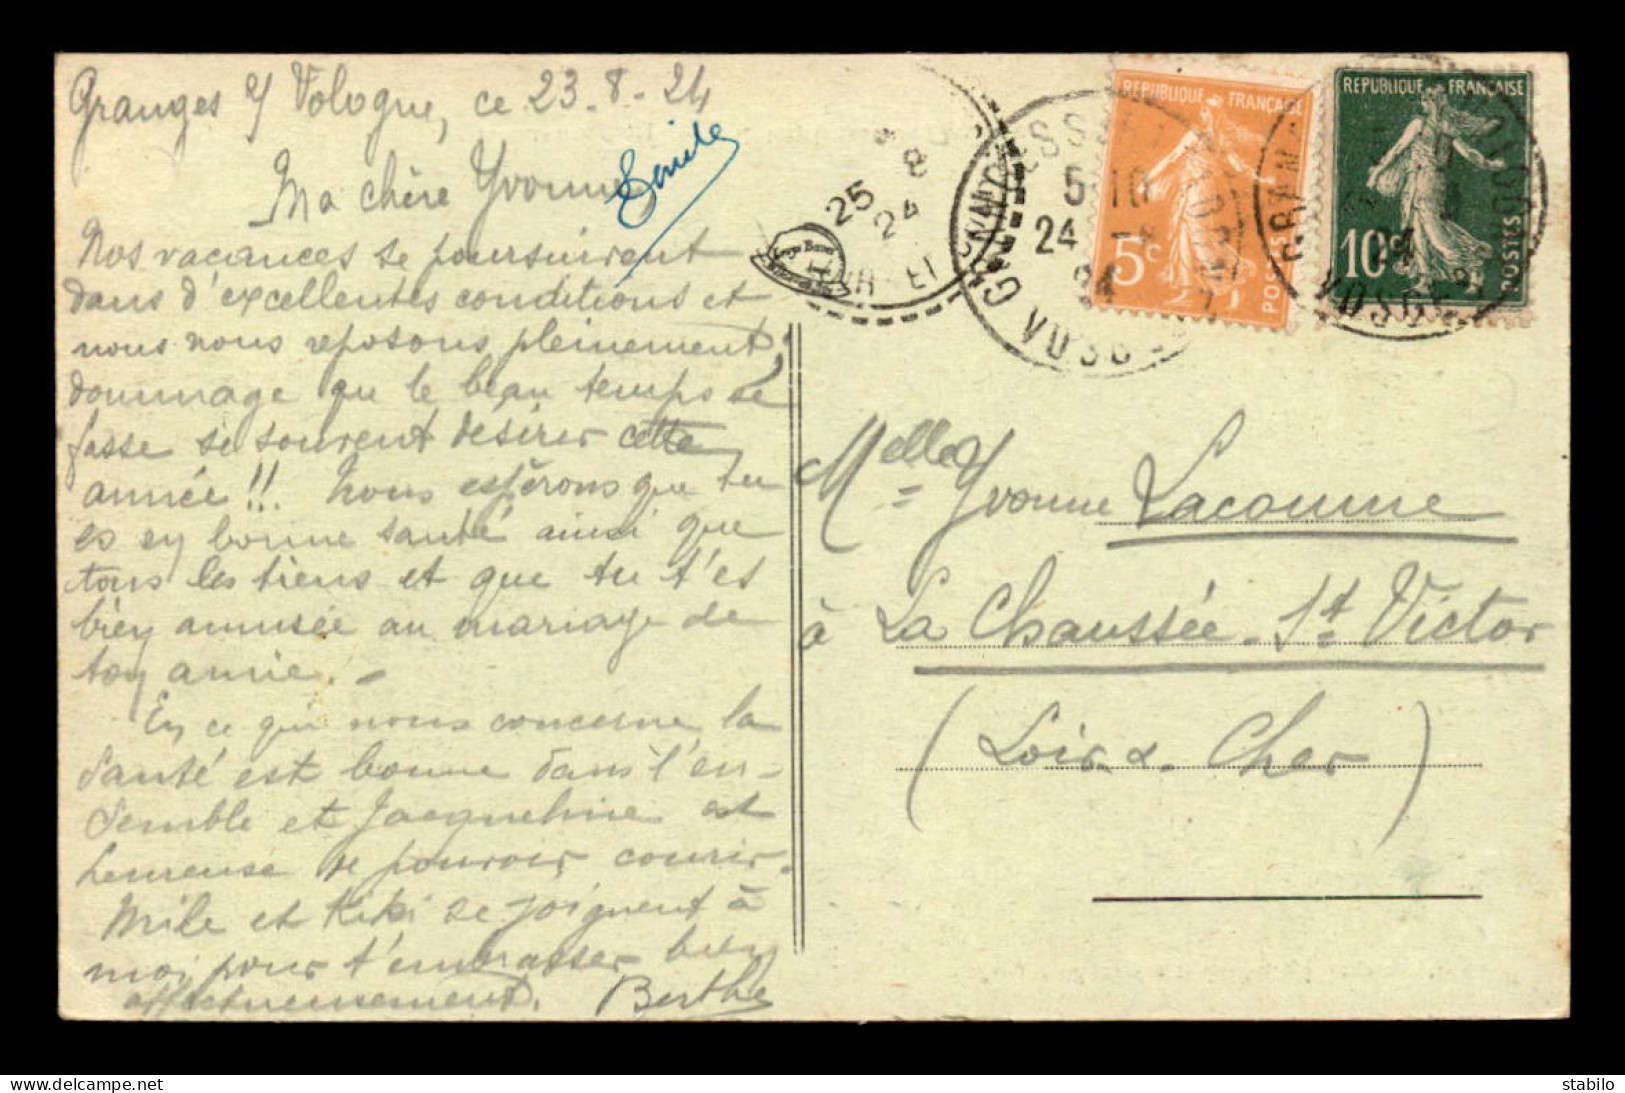 Granges s/ Vologne, ce 23-8-24
Ma chère Yvonne
Nos vacances se poursuivent
dans d'excellentes conditions et
nous nous reposons pleinement;
dommage que le beau temps se
fasse si souvent désirer cette
année!!. Nous espérons que tu
es en bonne santé ainsi que
tous les tiens et que tu t'es
bien amusée au mariage de
ton amie. -
En ce qui nous concerne, la
santé est bonne dans l'en-
semble et Jacqueline est
heureuse de pouvoir courir.
Mile et Kiki se joignent à
moi pour t'embrasser bien
affectueusement. Berthe
25 8
24
5·10
24
24
VOSGES
REPUBLIQUE FRANÇAISE
5c
POSTES
REPUBLIQUE FRANÇAISE
10c
POSTES
24
VOSGES
Melle Yvonne Lacomme
à La Chaussée-St Victor
(Loir & Cher)
www.delcampe.net
stabilo